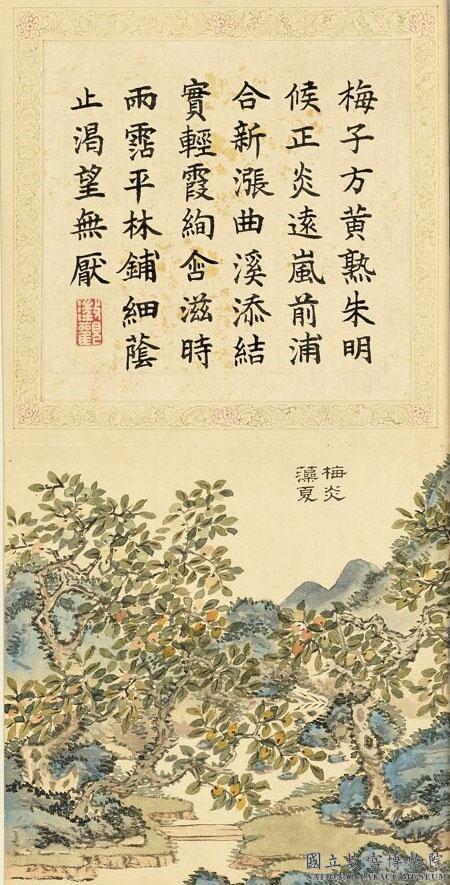 梅子方黄熟朱明
候正炎遠嵐前浦
合新漲曲溪添結
實輕霞絢含滋時
雨霑平林鋪細蔭
止渴望無厭
梅炎
藻夏
國立故宮博物院
NATIONAL PALACE MUSEUM